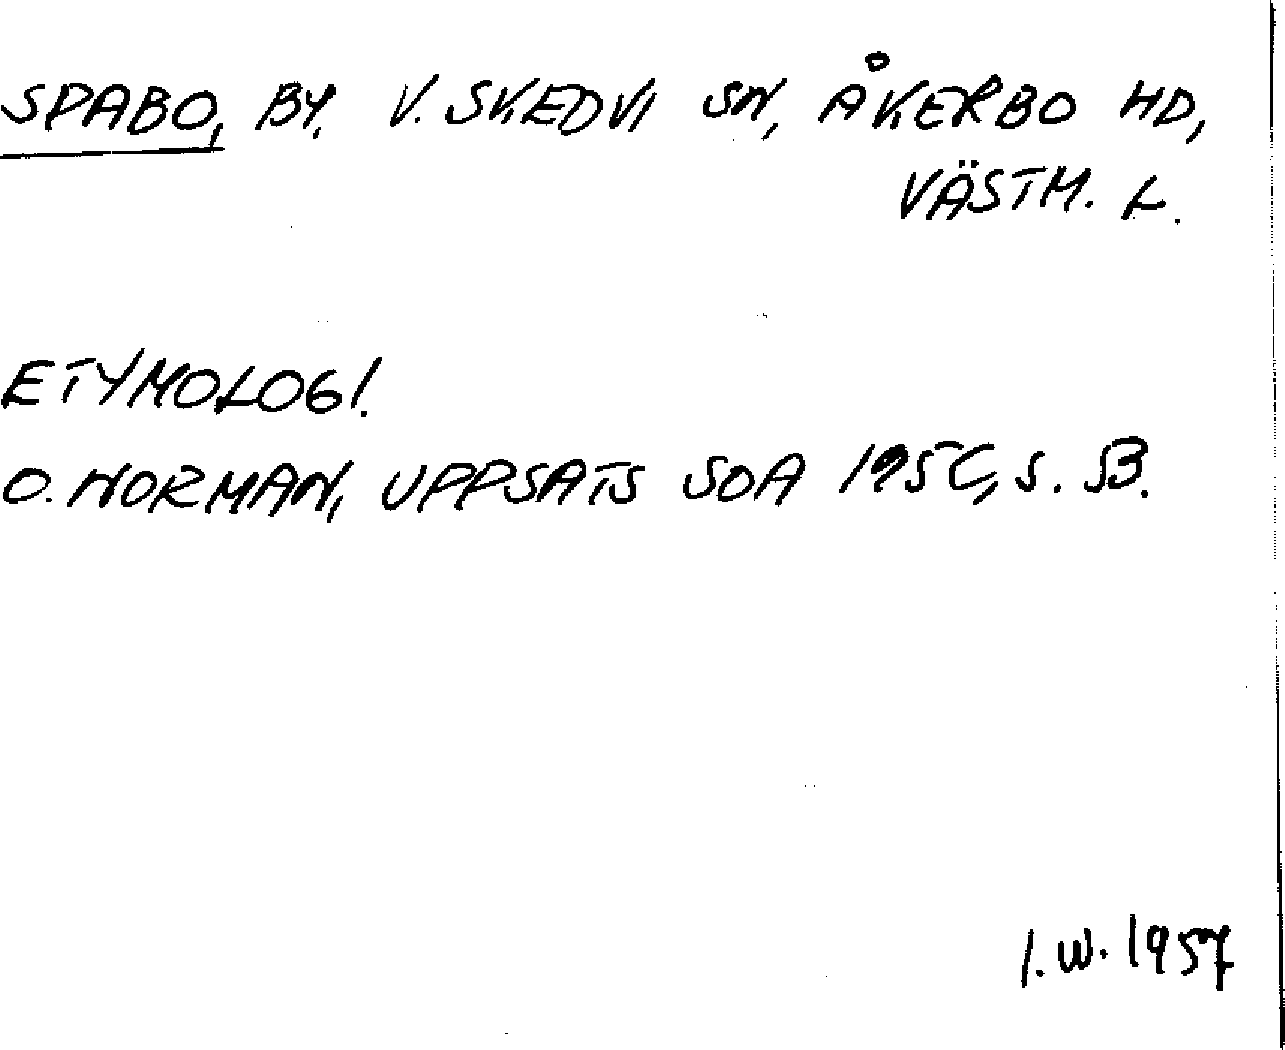 SPABO, BY, V. SKEDVI SN, ÅKERBO HD,
VÄSTM. L.
ETYMOLOGI.
O. NORMAN, UPPSATS SOA 195, S. 53.
I.W. 1957